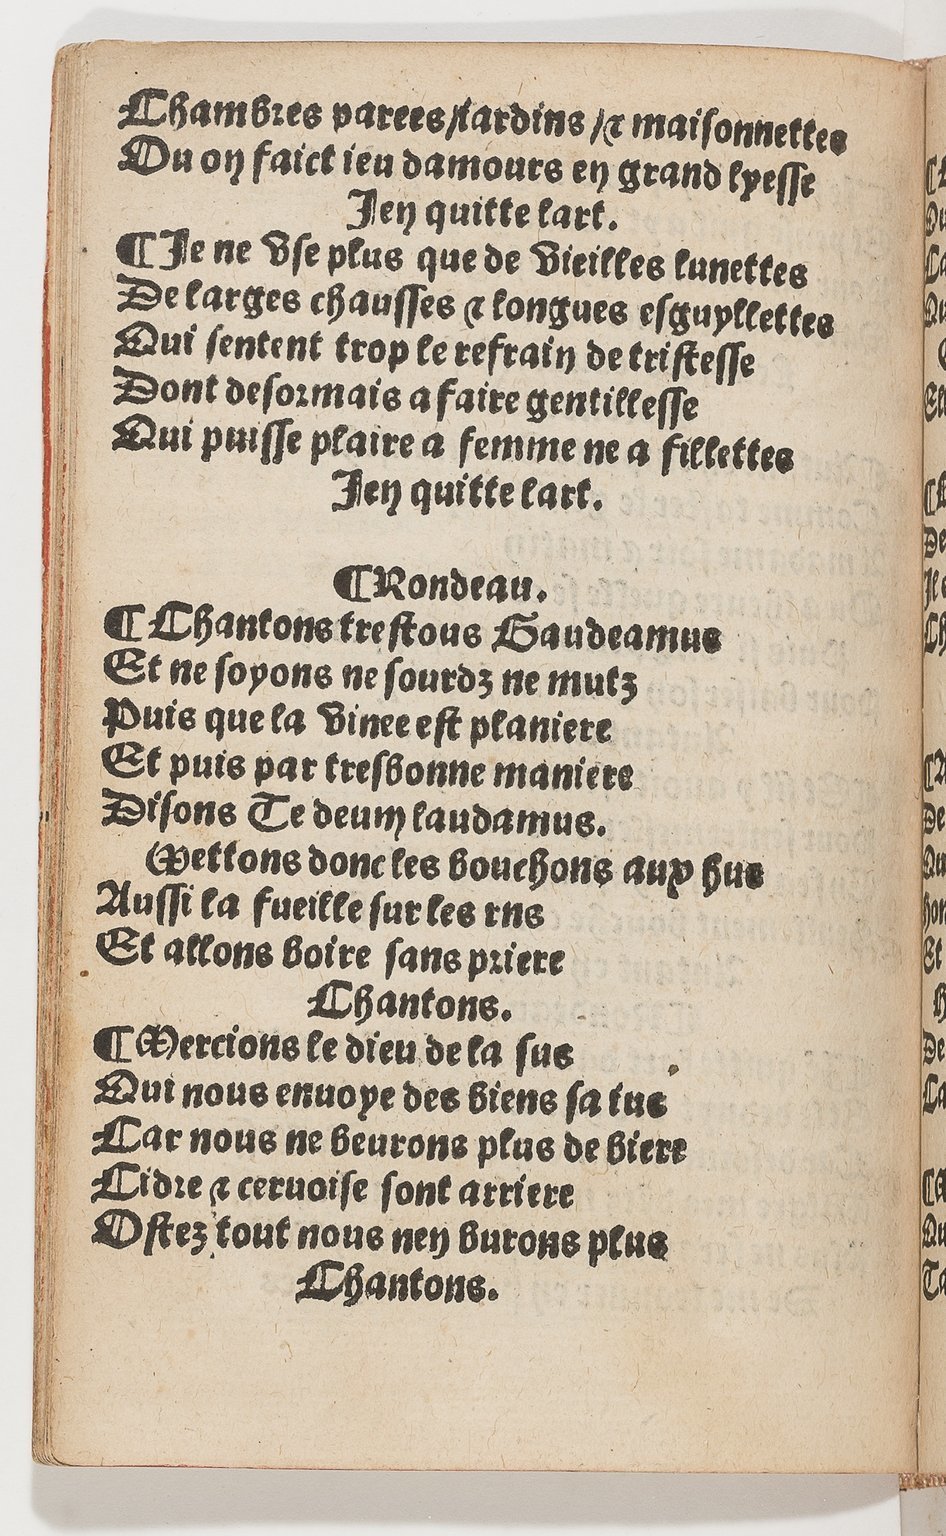 Chambres parees/iardins/⁊ maisonnettes
Ou on faict ieu damours en grand lyesse
Jen quitte lart.
¶Je ne vse plus que de vieilles lunettes
De larges chausses ⁊ longues esguyllettes
Qui sentent trop le refrain de tristesse
Dont desormais a faire gentillesse
Qui puisse plaire a femme ne a fillettes
Jen quitte lart.
¶Rondeau.
¶Chantons trestous Gaudeamus
Et ne soyons ne sourdz ne mutz
Puis que la vinee est planiere
Et puis par tresbonne maniere
Disons Te deum laudamus.
Mettons donc les bouchons aux hus
Aussi la fueille sur les rns
Et allons boire sans priere
Chantons.
¶Mercions le dieu de la sus
Qui nous enuoye des biens sa ius
Car nous ne beurons plus de biere
Cidre ⁊ ceruoise sont arriere
Ostez tout nous nen burons plus
Chantons.